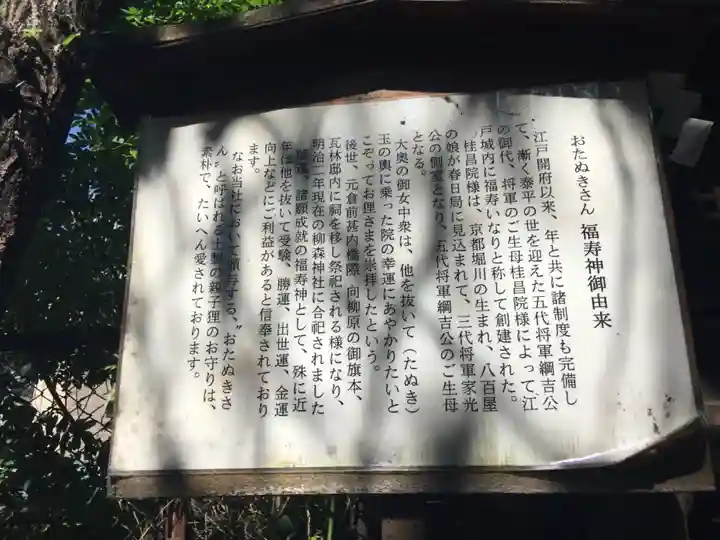 おたぬきさん 福寿神御由来
江戸開府以来、年と共に諸制度も完備し
て、漸く泰平の世を迎えた五代将軍綱吉公
の御代、将軍のご生母桂昌院様によって、江
戸城内に福寿いなりと称して創建された。
桂昌院様は、京都堀川の生まれ、八百屋
の娘が春日局に見込まれて、三代将軍家光
公の側室となり、五代将軍綱吉公のご生母
となる。
大奥の御女中衆は、他を抜いて(たぬき)
玉の輿に乗った院の幸運にあやかりたいと
こぞってお狸さまを崇拝したという。
後世、元倉前甚内橋際 向柳原の御旗本、
瓦林邸内に祠を移し祭祀される様になり、
明治二年現在の柳森神社に合祀されました
諸願成就の福寿神として、殊に近
年は他を抜いて受験、勝運、出世運、金運
向上などにご利益があると信奉されており
ます。
なお当社において頒与する、〝おたぬきさ
ん〟と呼ばれる土製の親子狸のお守りは、
素朴で、たいへん愛されております。